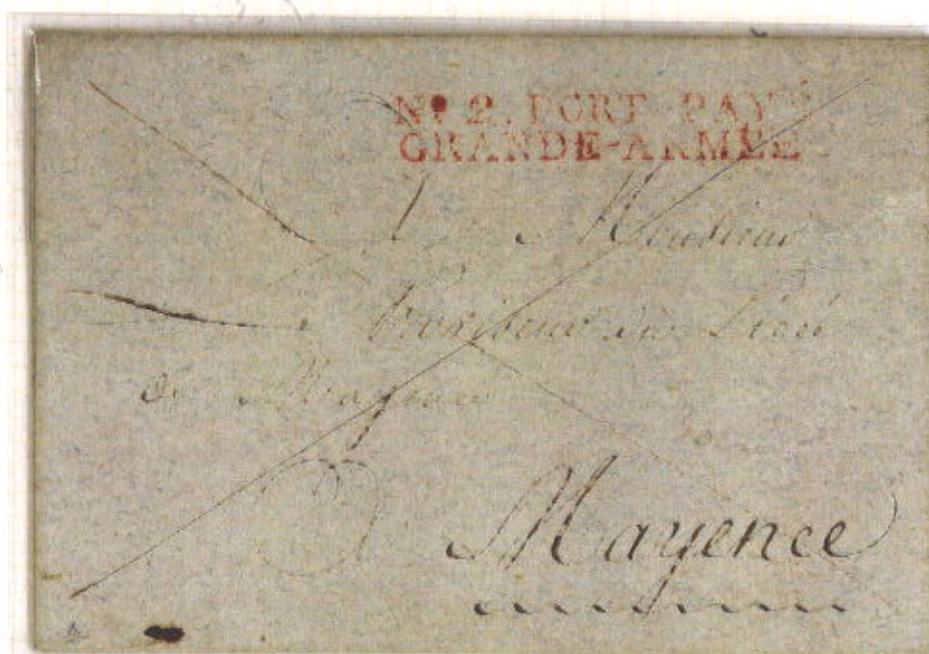 No 2. PORT PAYÉ
GRANDE-ARMÉE
A Monsieur
du Licé
de Mayence
Mayence